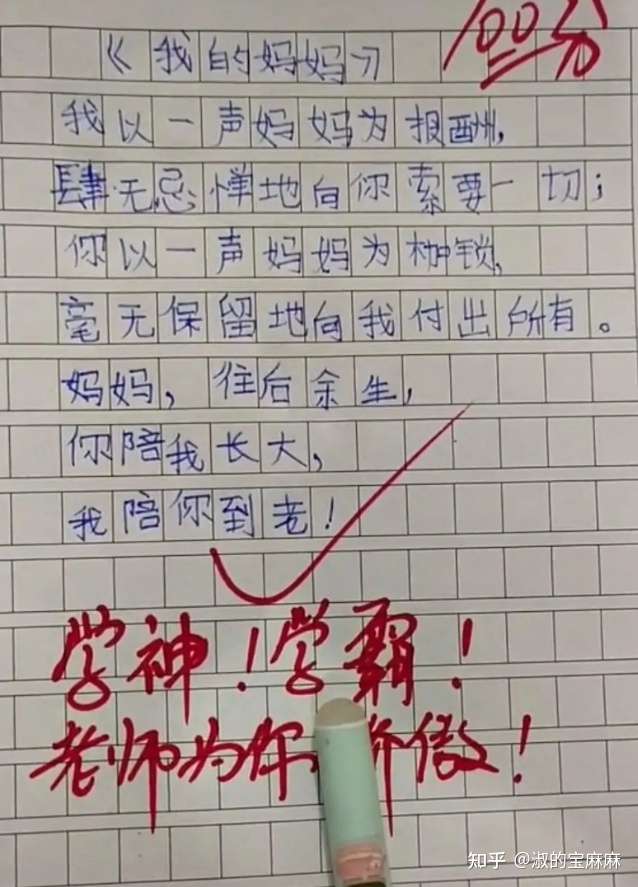 《我的妈妈》
100分
我以一声妈妈为报酬,
肆无忌惮地向你索要一切;
你以一声妈妈为枷锁,
毫无保留地向我付出所有。
妈妈,往后余生,
你陪我长大,
我陪你到老!
学神!学霸!
老师为你 傲!
知乎 @淑的宝麻麻